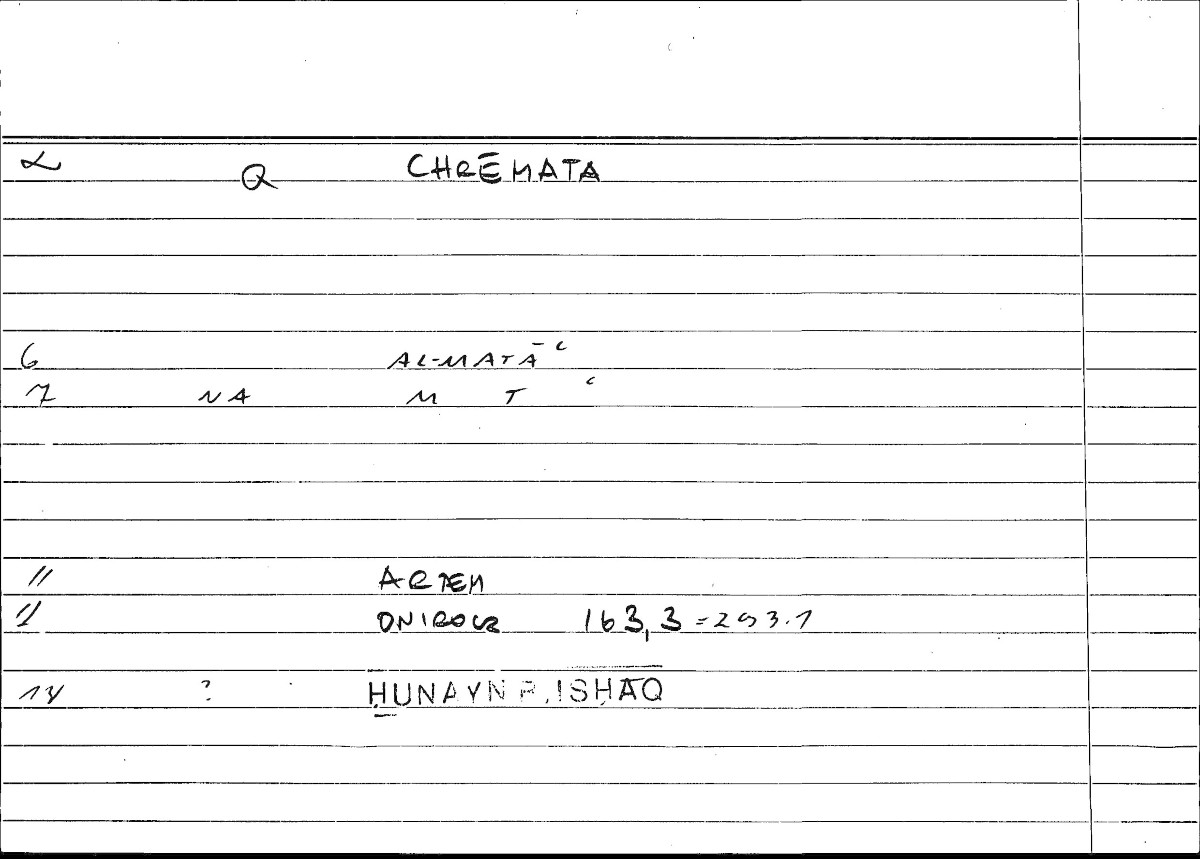 2 Q CHRĒMATA
6 AL-MATĀʿ
7 NA M T ʿ
11 ARTEM
ONIROCR 163,3 = 293.1
14 ? HUNAYN B. ISHĀQ